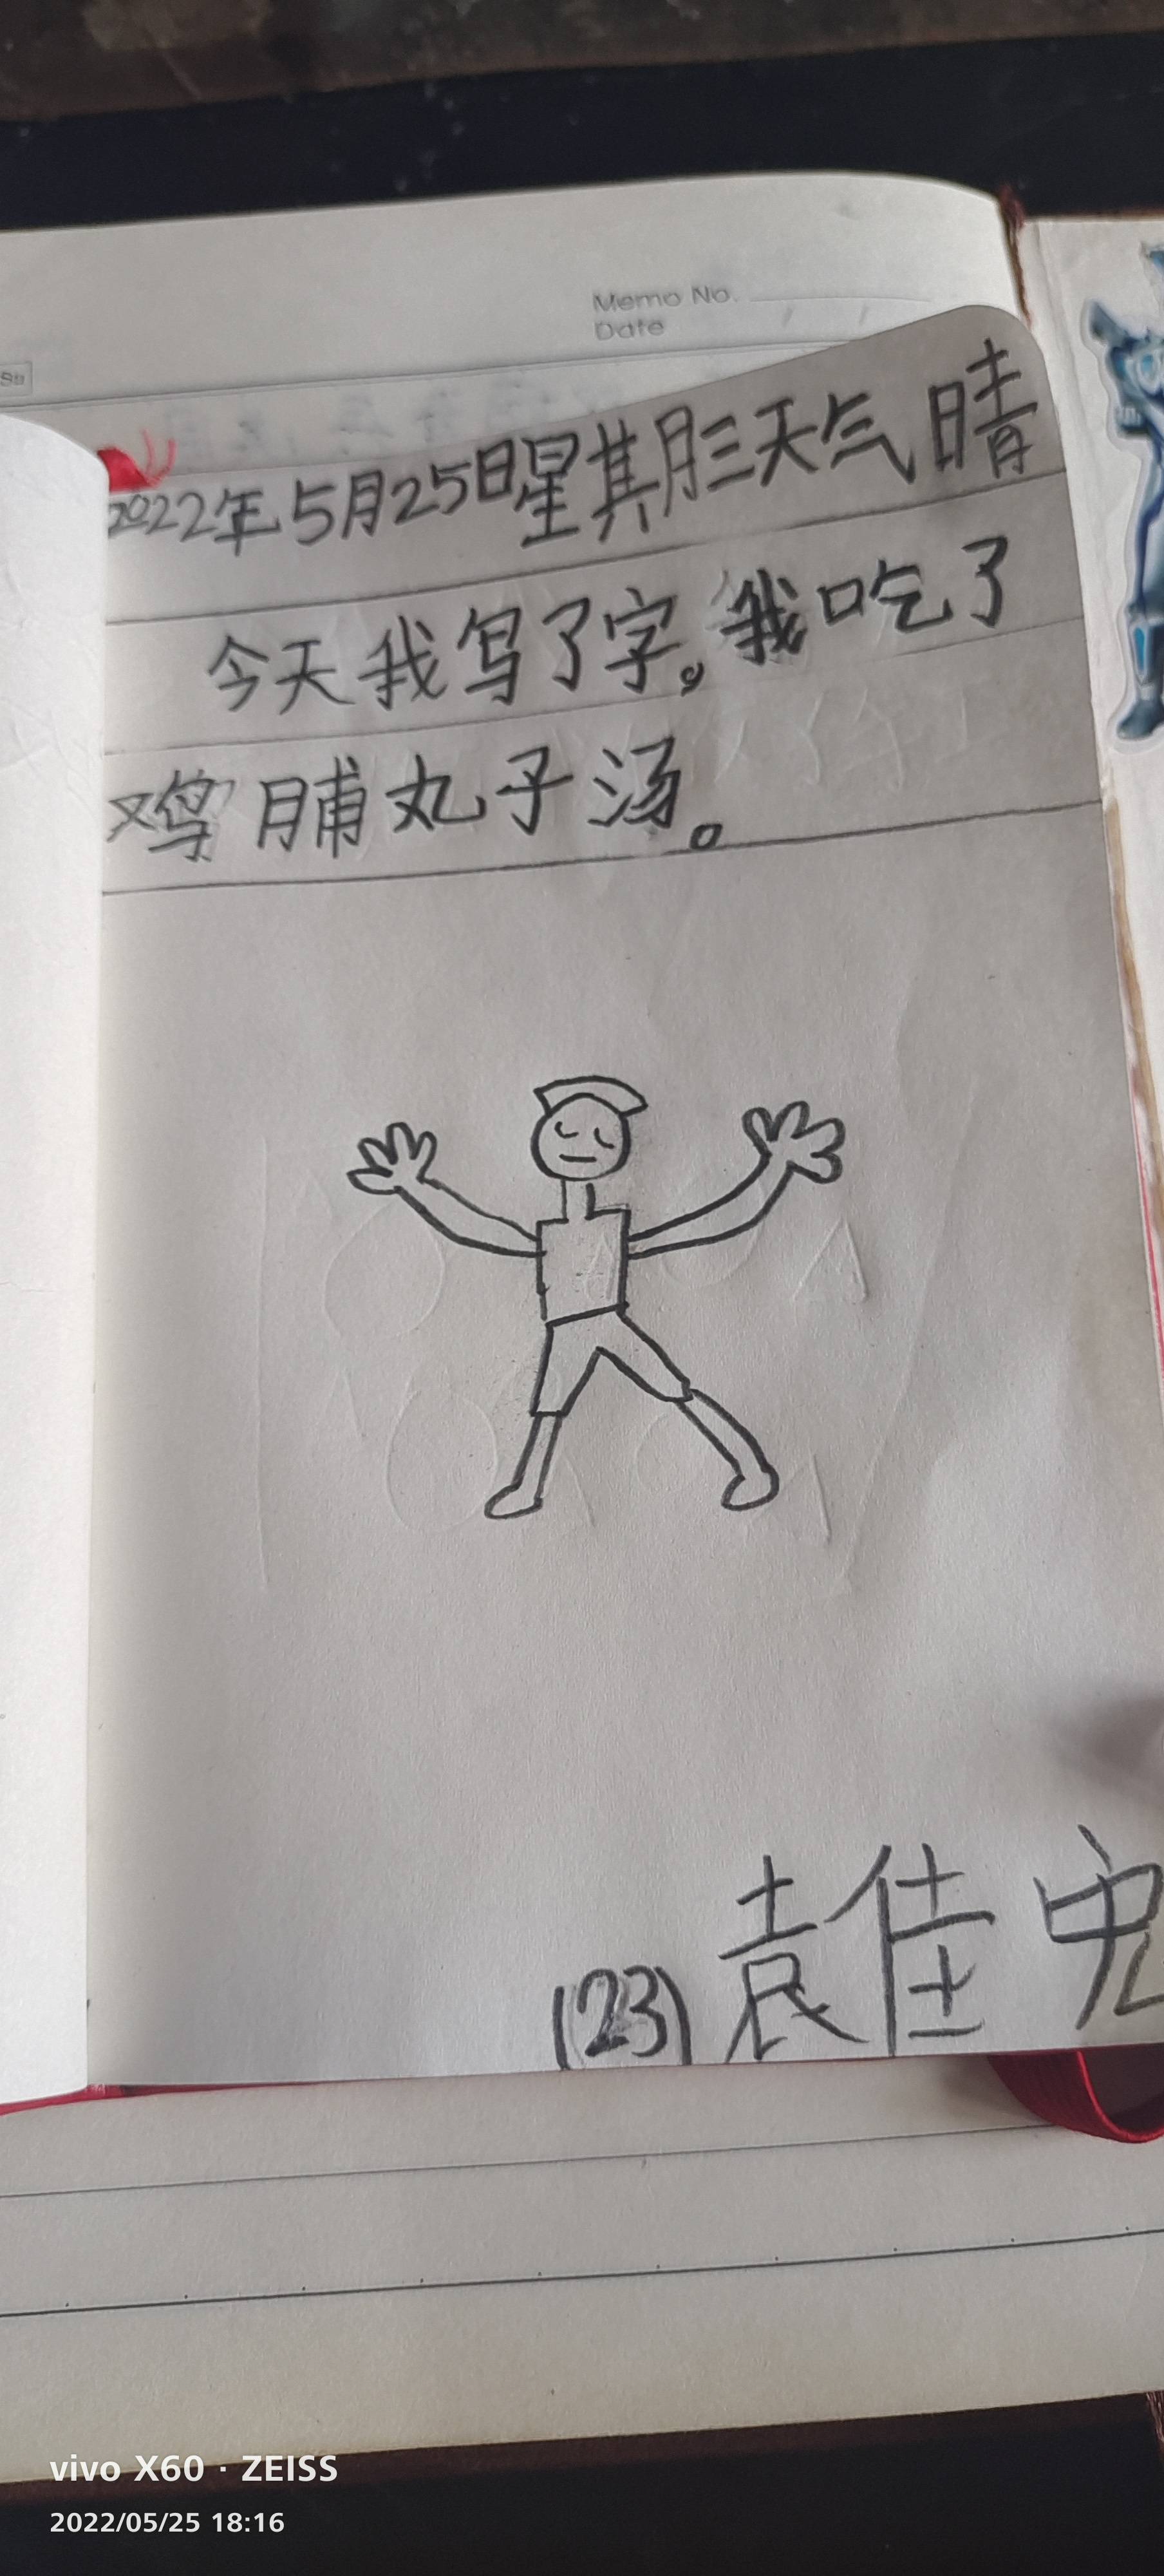 Memo No.
Date
2022年5月25日星期三天气晴
今天我写了字。我吃了
鸡脯丸子汤。
(23)袁佳
vivo X60 · ZEISS
2022/05/25 18:16